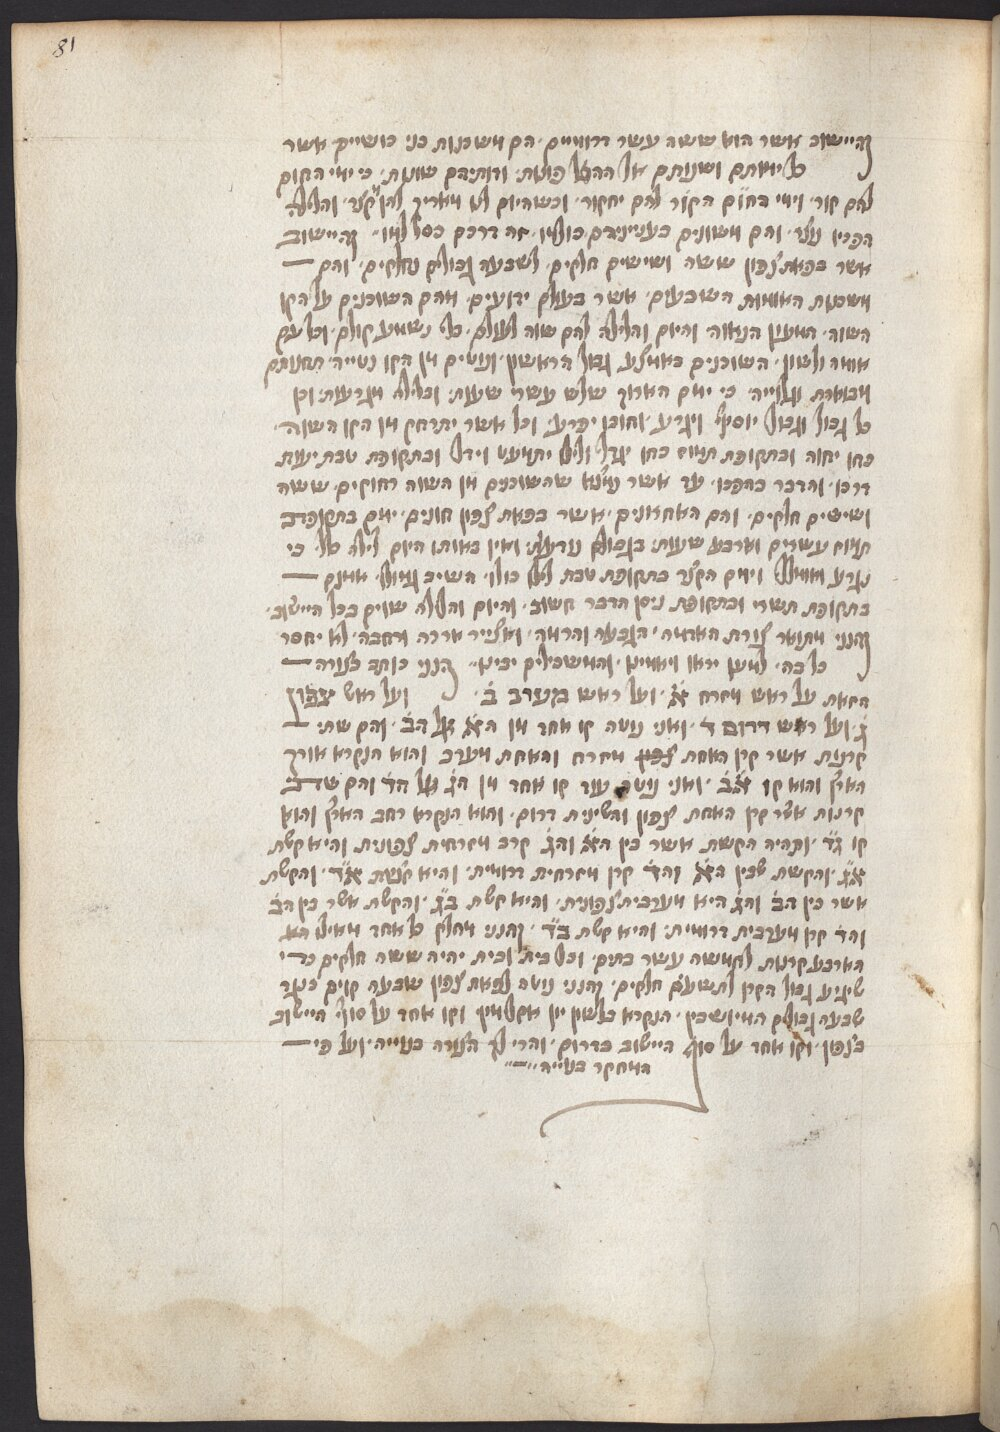 81
והיישוב אשר הוא ששה עשר דרומיים. הם משכנות בני כושיים אשר
כל ימיהם ושנותם אל ההבל פונות. ורוחם שונות. כי ימי החום
להם קור. וימי בחום הקור להם יחקור. וכשהיום לנו מאריך להן קצר. והלילה
הפכיו נצר. והם משונים בעניניהם כולמו. זה דרכם כסל למו. והיישוב
אשר בפאת צפון ששה וששים חלקים. לשבעה גבולים נחלקים. והם
משכנות האומות השבעים. אשר בעולם ידועים. מהם השוכנים על הקו
השוה. המעון הנאוה. והיום והלילה להם שוה לעולם. בלי נשמע קולם. וכל עם
אומה ולשון. השוכנים באמצע גבול הראשון. ונוטים מן הקו נטייה. תחנותם
מבוארת וגלוייה. כי יומם הארוך שלש עשרי שעות. ובלילה מגרעות. וכן
כל גבול וגבול יוסיף ויגרע. וחובו יפרע. וכל אשר יתרחק מן הקו השוה.
כחו יחוה ובתקופת תמוז כחו יגדל ולילו יתמעט וידל ובתקופת טבת יעות
דרכו. והדבר בהפכו. עד אשר נמצא שהשוכנים מן השוה רחוקים. ששה
וששים חלקים. והם האחרונים. אשר בפאת צפון חונים. יומם בתקופת
תמוז עשרים וארבע שעות. בגבולם נודעות. ואין באותו היום לילה כלל. כי
נגרע ואומלל ויומם הקצר בתקופת טבת לילה כולו. השיב גמולו. אמנם
בתקופת תשרי ובתקופת ניסן הדבר חשוב. והיום והלילה שוים בכל היישוב.
והנני מתאר צורת האדמה. הגבעה והרמה. ואצייר ארכה ורחבה. לא יחסר
כל בה. למען יראו ויאמינו. והמשכילים יבינו. והנני כותב בצורה
הזאת על ראש מזרח א. ועל ראש מערב ב. ועל ראש צפון
ג. ועל ראש דרום ד. ואני נוטה קו אחד מן הא אל הב. והם שתי
קרנות אשר קרן האחת לצפון מזרח והאחת מערב והוא הנקרא אורך
הארץ והוא קו אב. ואני נוטה עוד קו אחד מן הג אל הד והם שתי
קרנות אשר קרן האחת צפון והשינית דרום. והוא הנקרא רחב הארץ והוא
קו גד. ותהיה הקשת אשר בין הא והג קרן מזרחית צפונית והיא קשת
אג. והקשת שבין הא והד קרן מזרחית דרומית. והיא קשת אד. והקשת
אשר בין הב והג היא מערבית צפונית. והיא קשת בג. והקשת אשר בין הב
והד קרן מערבית דרומית. והיא קשת בד. והנני מחלק כל אחד מאילו הא
הארבע קרנות לחמשה עשר בתים. וכל בית ובית יהיה ששה חלקים כדי
שיגיע גבול הקרן לתשעים חלקים. והנני נוטה לפאת צפון שבעה קוים כנגד
שבעה גבולים המיושבין. הנקרא בלשון יון אקלימין וקו אחד על סוף היישוב
בצפון. וקו אחד על סוף היישוב בדרום. והרי לך הצורה בנוייה. ועל פי
המחקר בטייה